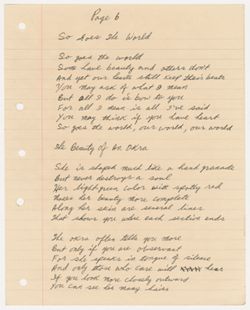 Page 6
So Goes The World
So goes the world
Some have beauty and others don't
And yet our hearts still keep their beats
You may ask of what I mean
But all I do is bow to you
For all I mean is all I've said
You may think if you have heart
So goes the world, our world, our world
The Beauty of An Okra
She is shaped much like a hand granade
But never destroys a soul
Her light green color with spotty red
Makes her beauty more complete
Along her skin are several lines
That shows you where each section ends
The okra offer tells you more
But only if you are observant
For she speaks in tongue of silence
And only those who care will hear
If you look more closely
You can see her many hairs